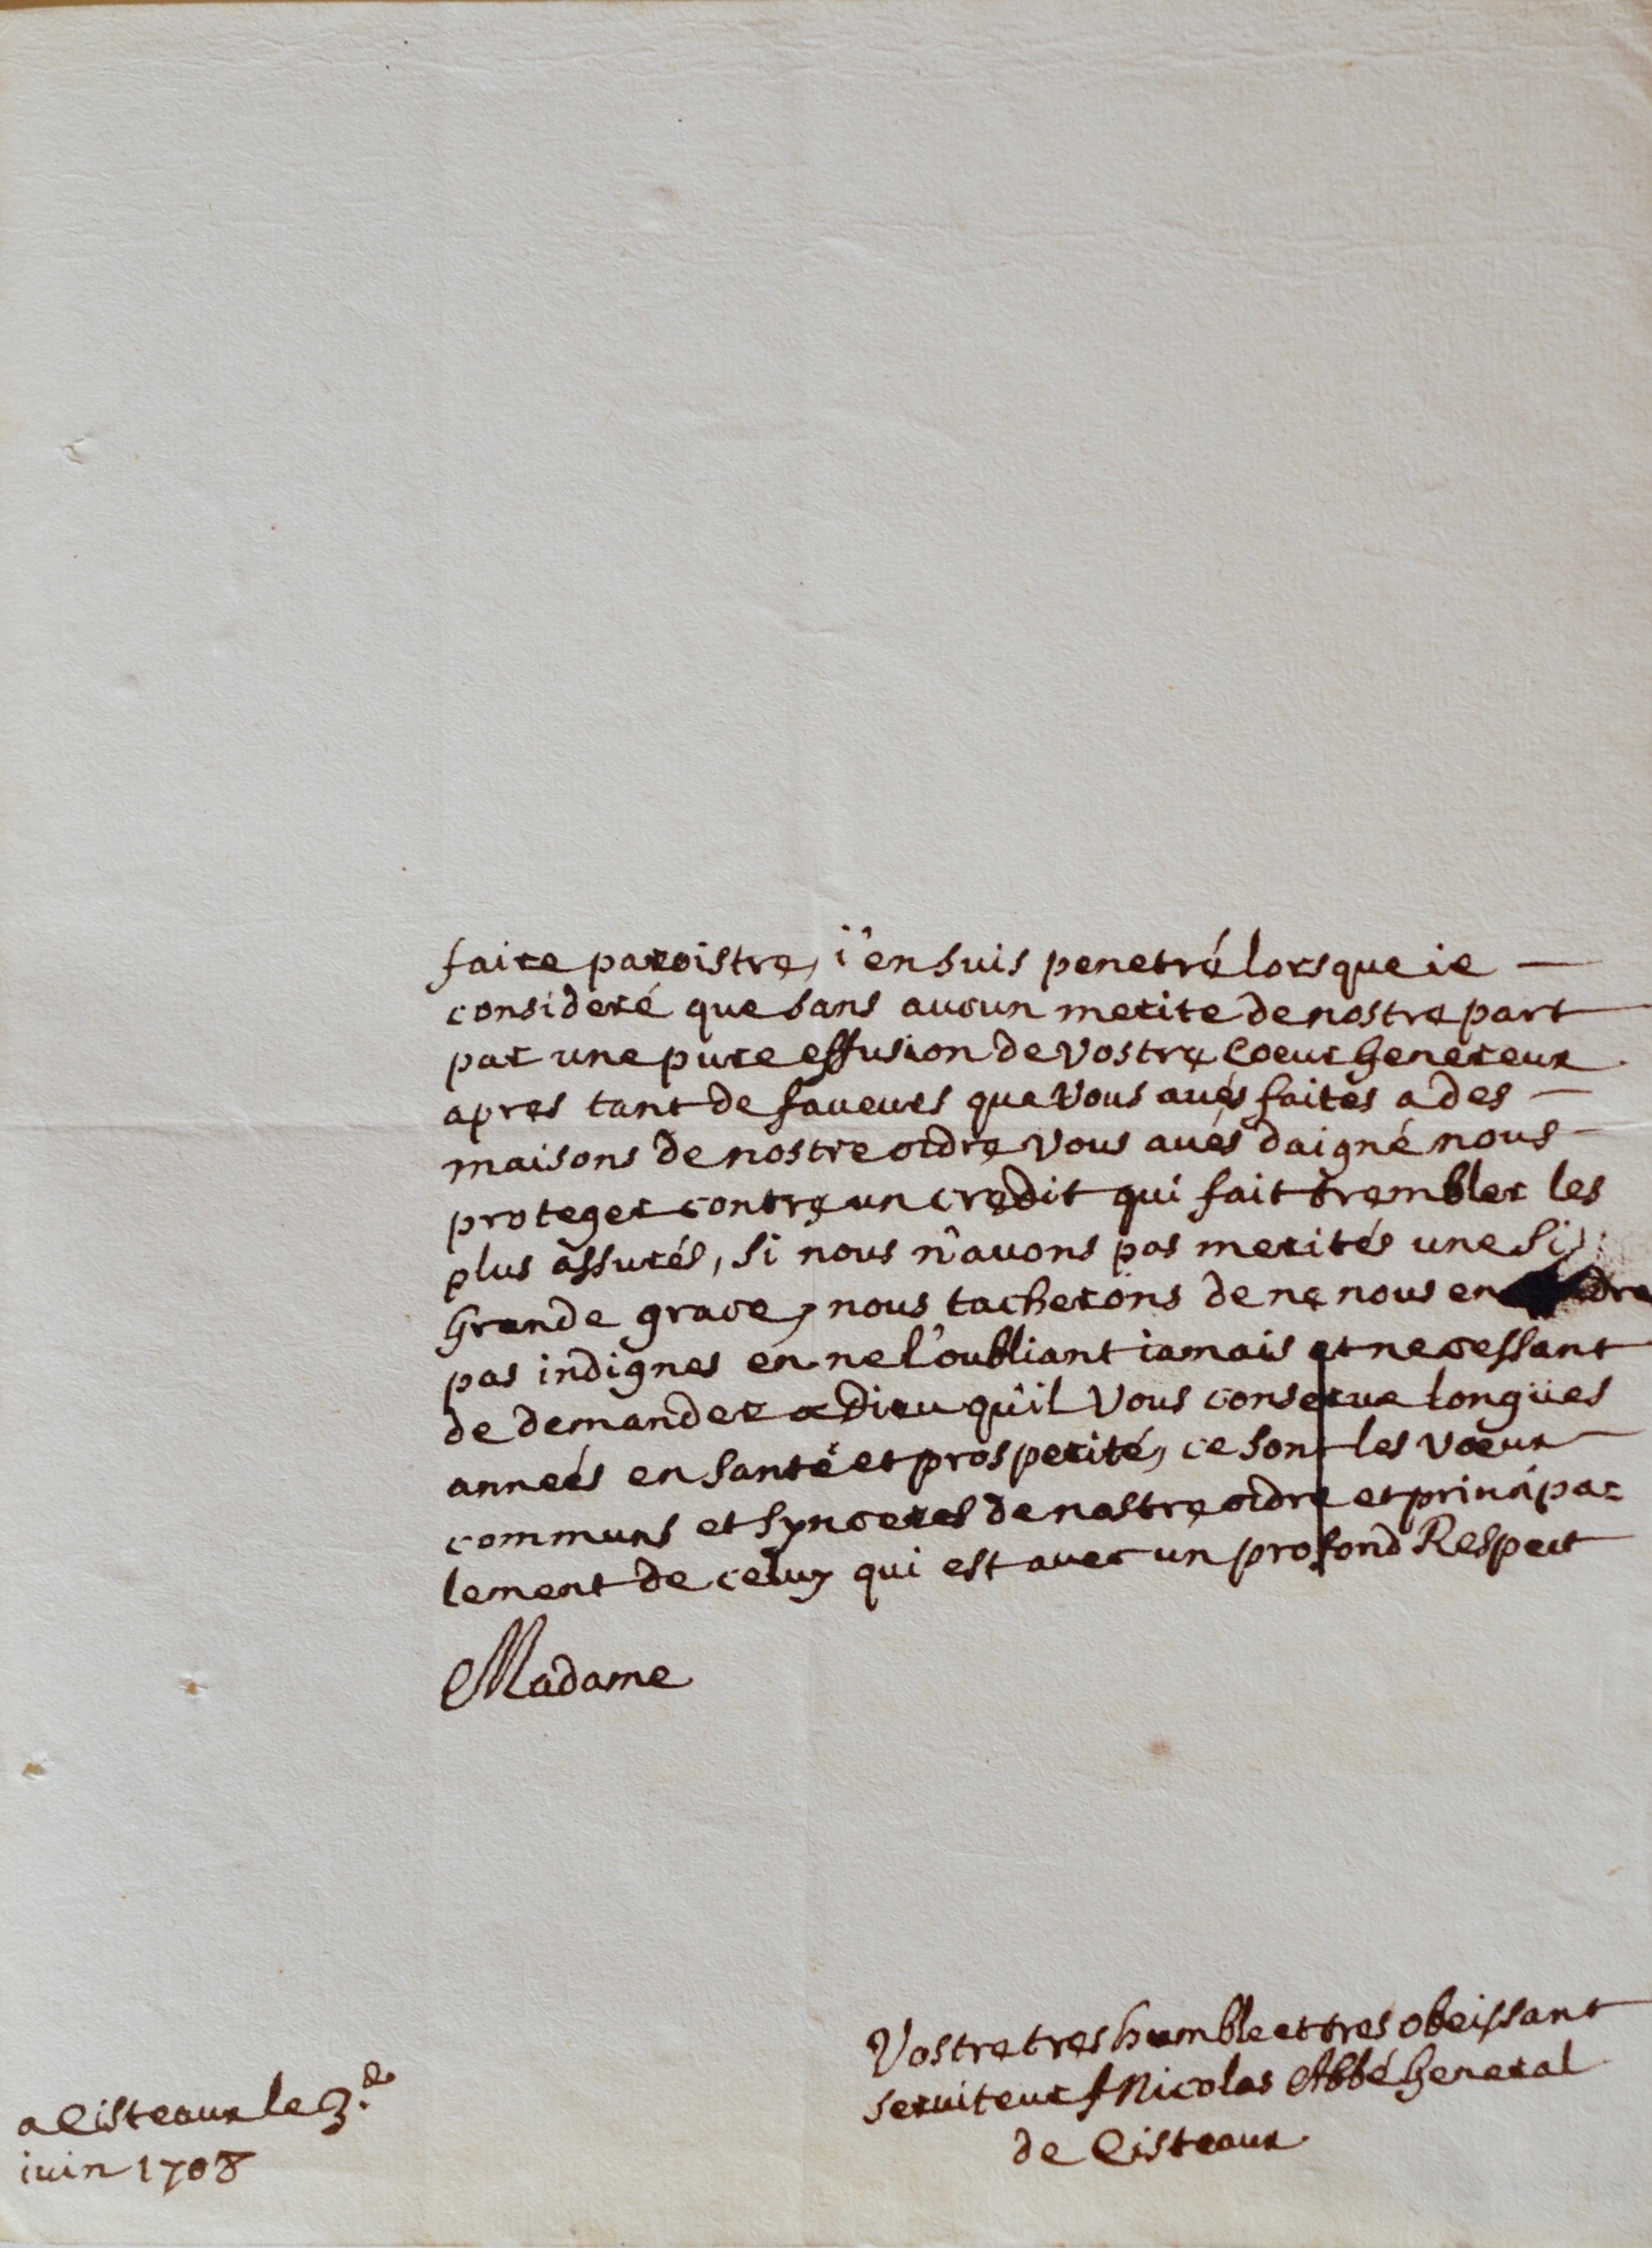 faire paroistre, i'en suis penetré lorsque ie
consideré que sans aucun merite de nostre part
par une pure effusion de vostre Coeur Genereux
apres tant de faueurs que vous aués faites a des
maisons de nostre ordre vous aués daigné nous
proteger contre un credit qui fait trembler les
plus assurés, si nous n'auons pas merités une si
Grande grace, nous tacherons de ne nous en
pas indignes en ne l'oubliant iamais et ne cessant
de demander a Dieu qu'il vous conserue longües
anneés en santé et prosperité, ce sont les voeux
communs et synceres de nostre ordre et principa=
lement de celuy qui est auec un profond Respect
Madame
Vostre tres humble et tres obeissant
seruiteur f Nicolas Abbé General
de Cisteaux
a Cisteaux le 3.e
iuin 1708